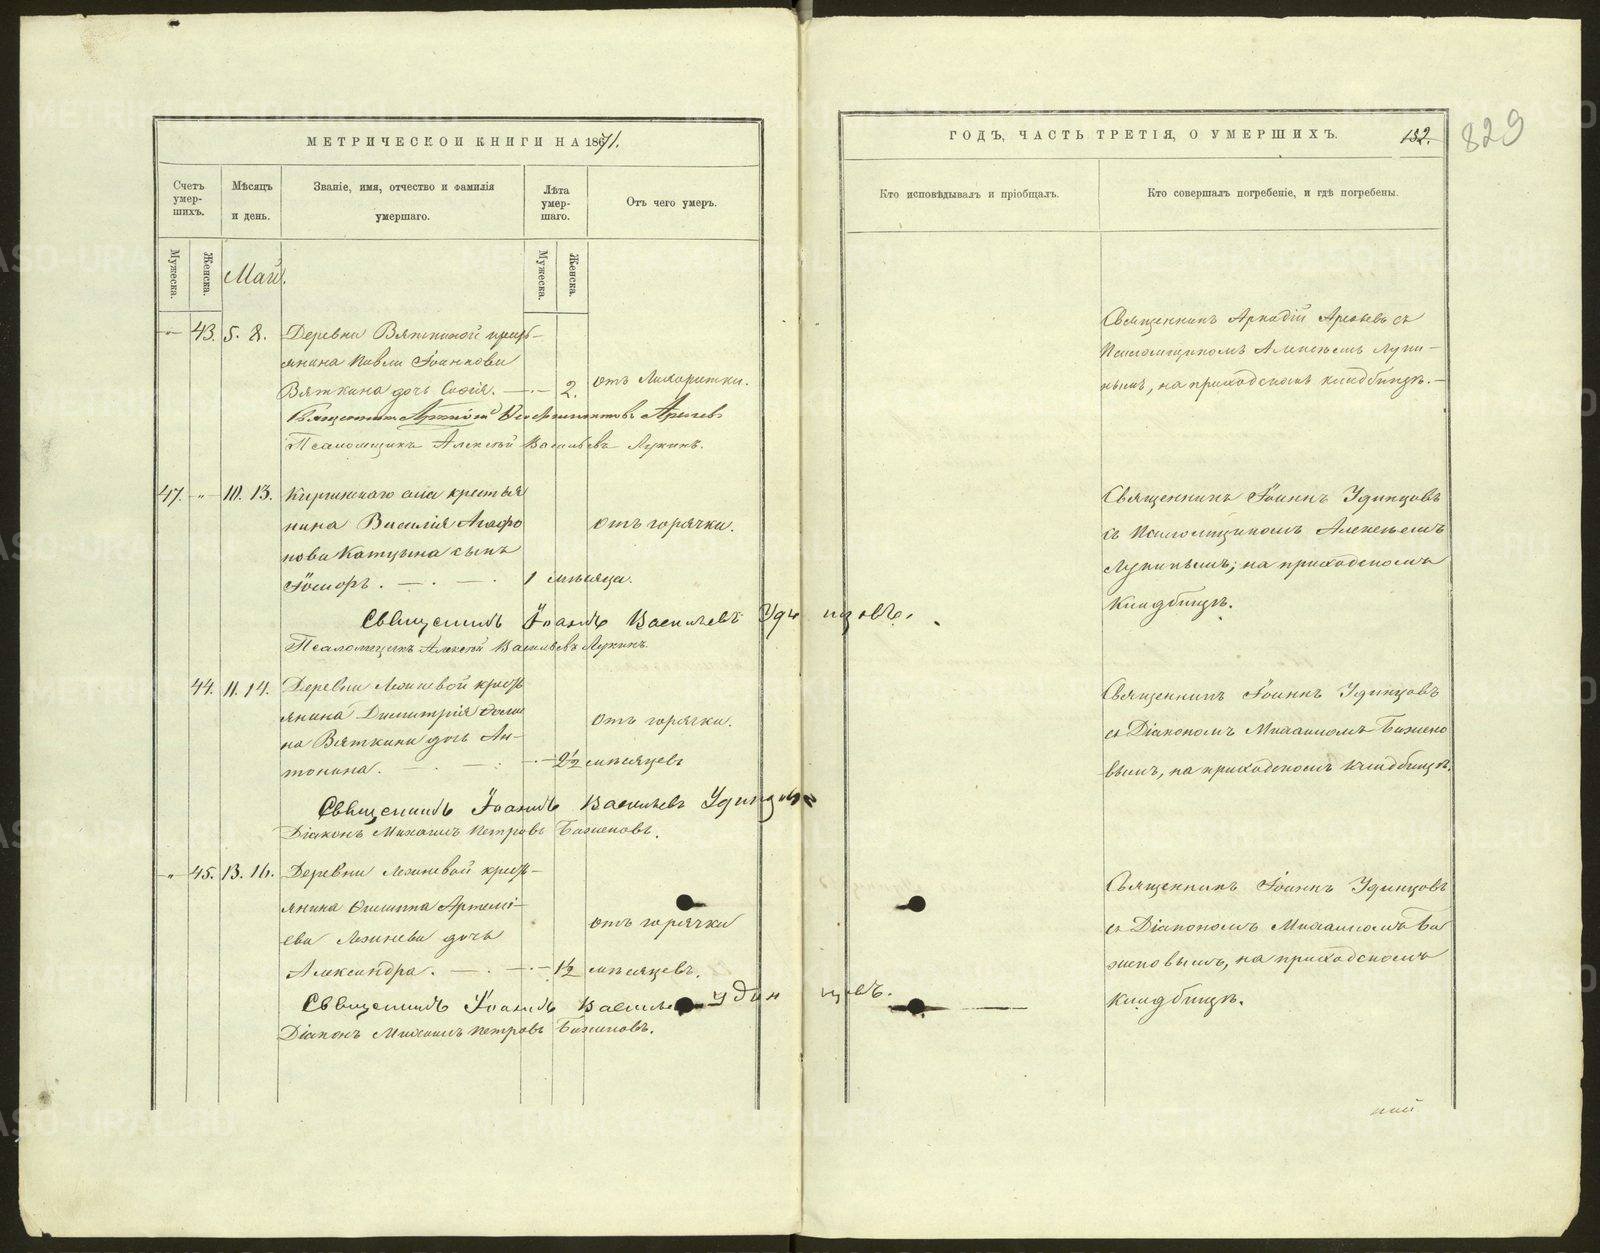 МЕТРИЧЕСКОЙ КНИГИ НА 1871.
Счетъ умер-шихъ.
Мѣсяцъ и день.
Званіе, имя, отчество и фамилія умершаго.
Лѣта умер-шаго.
Отъ чего умеръ.
Мужеска.
Женска.
Май.
Мужеска.
Женска.
43. 5. 8. Деревни Вяткиной кресть-
янина Павла Іоаннова
Вяткина дочь Софія. 2. отъ Лихорадки.
Священникъ Аркадій Ареѳьевъ
Псаломщикъ Алексѣй Васильевъ Лукинъ.
47. " 10. 13. села крестья
нина Василія Агафо
нова сынъ отъ горячки.
Іосифъ. 1 мѣсяца.
Священникъ Іоаннъ Васильевъ Удинцовъ.
Псаломщикъ Алексѣй Васильевъ Лукинъ.
44. 11. 14. Деревни крест
янина Димитрія
на Вяткина дочь Ан- отъ горячки.
тонина. 2½ мѣсяцевъ
Священникъ Іоаннъ Васильевъ Удинцовъ
Діаконъ Михаилъ Петровъ Баженовъ.
" 45. 13. 16. Деревни крест-
янина Филиппа Артемі-
ева дочь отъ горячки
Александра. 1½ мѣсяцевъ.
Священникъ Іоаннъ Василье Удинцовъ.
Діаконъ Михаилъ Петровъ Баженовъ.
ГОДЪ, ЧАСТЬ ТРЕТІЯ, О УМЕРШИХЪ.
132.
829
Кто исповѣдывалъ и пріобщалъ.
Кто совершалъ погребеніе, и гдѣ погребены.
Священникъ Аркадій Ареѳьевъ съ
Псаломщикомъ Алексѣемъ Луки-
нымъ, на приходскомъ кладбищѣ.
Священникъ Іоаннъ Удинцовъ
съ Псаломщикомъ Алексѣемъ
Лукинымъ, на приходскомъ
кладбищѣ.
Священникъ Іоаннъ Удинцовъ
съ Діакономъ Михаиломъ Бажено
вымъ, на приходскомъ кладбищѣ.
Священникъ Іоаннъ Удинцовъ
съ Діакономъ Михаиломъ Ба
женовымъ, на приходскомъ
кладбищѣ.
METRIKI.EASO-URAL.RU